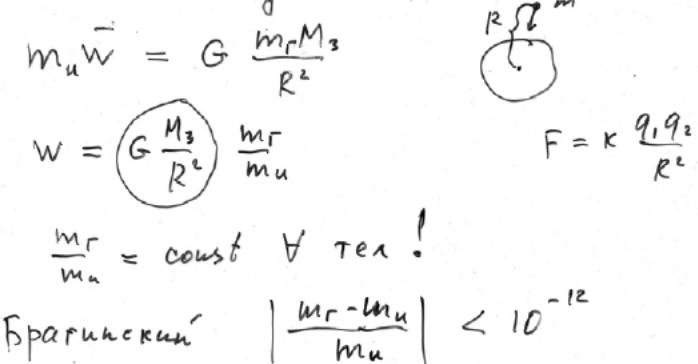 m_и w̄ = G m_г M_з / R²
R m
w = G M_з / R² m_г / m_и
F = k q₁q₂ / R²
m_г / m_и = const ∀ тел!
Брагинский | m_г - m_и / m_и | < 10⁻¹²